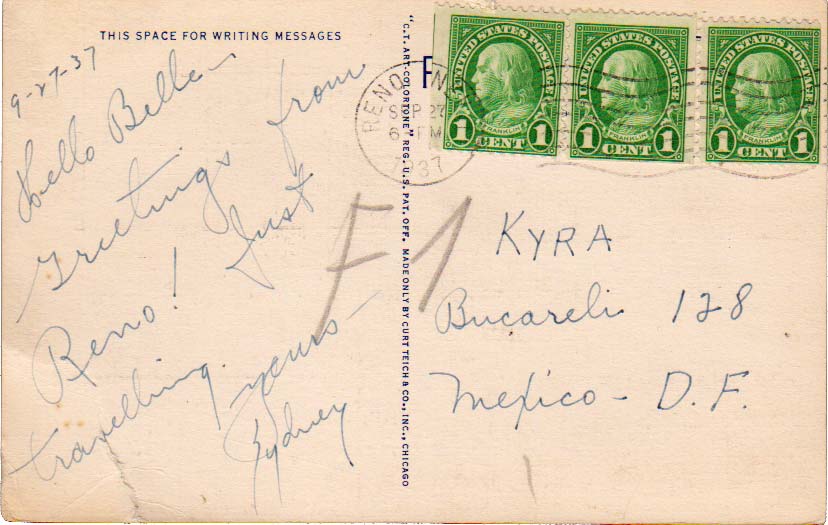 THIS SPACE FOR WRITING MESSAGES
9-27-37
Hello Belle -
Greetings from
Reno! Just
travelling.
yours -
Sydney
"C.T. ART-COLORTONE" REG. U.S. PAT. OFF. MADE ONLY BY CURT TEICH & CO., INC., CHICAGO
UNITED STATES POSTAGE
FRANKLIN
1 CENT 1
UNITED STATES POSTAGE
FRANKLIN
1 CENT 1
UNITED STATES POSTAGE
FRANKLIN
1 CENT 1
RENO
SEP 27
6 PM
1937
F1
KYRA
Bucareli 128
Mexico - D.F.